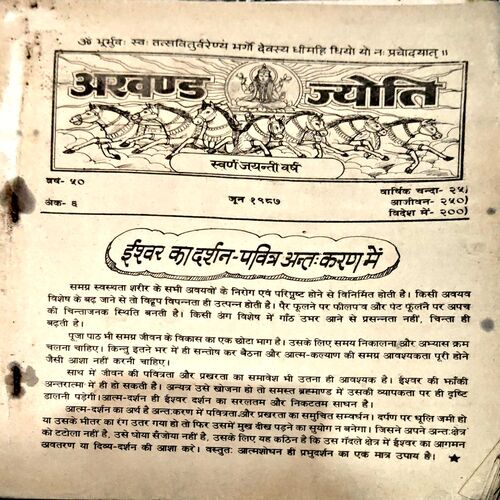 ॐ भूर्भुवः स्वः तत्सवितुर्वरेण्यं भर्गो देवस्य धीमहि धियो यो नः प्रचोदयात् ॥
अखण्ड ज्योति
स्वर्ण जयन्ती वर्ष
वर्ष- ५०
अंक- ६
जून १९८७
वार्षिक चन्दा- २५)
आजीवन- २५०)
विदेश में- २००)
ईश्वर का दर्शन-पवित्र अन्तःकरण में
समग्र स्वस्थता शरीर के सभी अवयवों के निरोग एवं परिपुष्ट होने से विनिर्मित होती है। किसी अवयव
विशेष के बढ़ जाने से तो विद्रूप विपन्नता ही उत्पन्न होती है। पैर फूलने पर फीलपाँव और पेट फूलने पर अपच
की चिन्ताजनक स्थिति बनती है। किसी अंग विशेष में गाँठ उभर आने से प्रसन्नता नहीं, चिन्ता ही
बढ़ती है।
पूजा पाठ भी समग्र जीवन के विकास का एक छोटा भाग है। उसके लिए समय निकालना और अभ्यास क्रम
चलना चाहिए। किन्तु इतने भर में ही सन्तोष कर बैठना और आत्म-कल्याण की समग्र आवश्यकता पूरी होने
जैसी आशा नहीं करनी चाहिए।
साथ में जीवन की पवित्रता और प्रखरता का समावेश भी उतना ही आवश्यक है। ईश्वर की झाँकी
अन्तरात्मा में ही हो सकती है। अन्यत्र उसे खोजना हो तो समस्त ब्रह्माण्ड में उसकी व्यापकता पर ही दृष्टि
डालनी पड़ेगी।आत्म-दर्शन ही ईश्वर दर्शन का सरलतम और निकटतम साधन है।
आत्म-दर्शन का अर्थ है अन्तःकरण में पवित्रता और प्रखरता का समुचित सम्वर्धन। दर्पण पर धूलि जमी हो
या उसके भीतर का रंग उतर गया हो तो फिर उसमें मुख दीख पड़ने का सुयोग न बनेगा। जिसने अपने अन्तःक्षेत्र
को टटोला नहीं है, उसे धोया सँजोया नहीं है, उसके लिए यह कठिन है कि उस गँदले क्षेत्र में ईश्वर का आगमन
अवतरण या दिव्य-दर्शन की आशा करे। वस्तुतः आत्मशोधन ही प्रभुदर्शन का एक मात्र उपाय है।